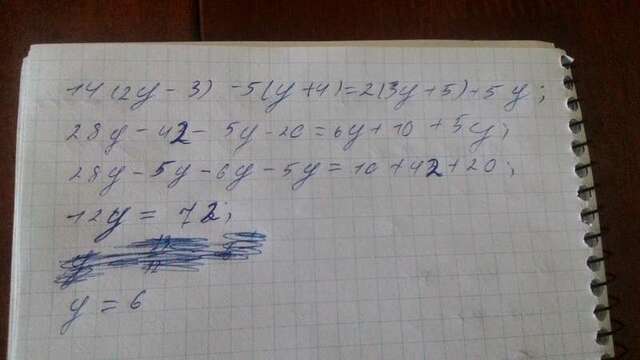 14(2y-3)-5(y+4)=2(3y+5)+5y;
28y-42-5y-20=6y+10+5y;
28y-5y-6y-5y=10+42+20;
12y=72;
y=6